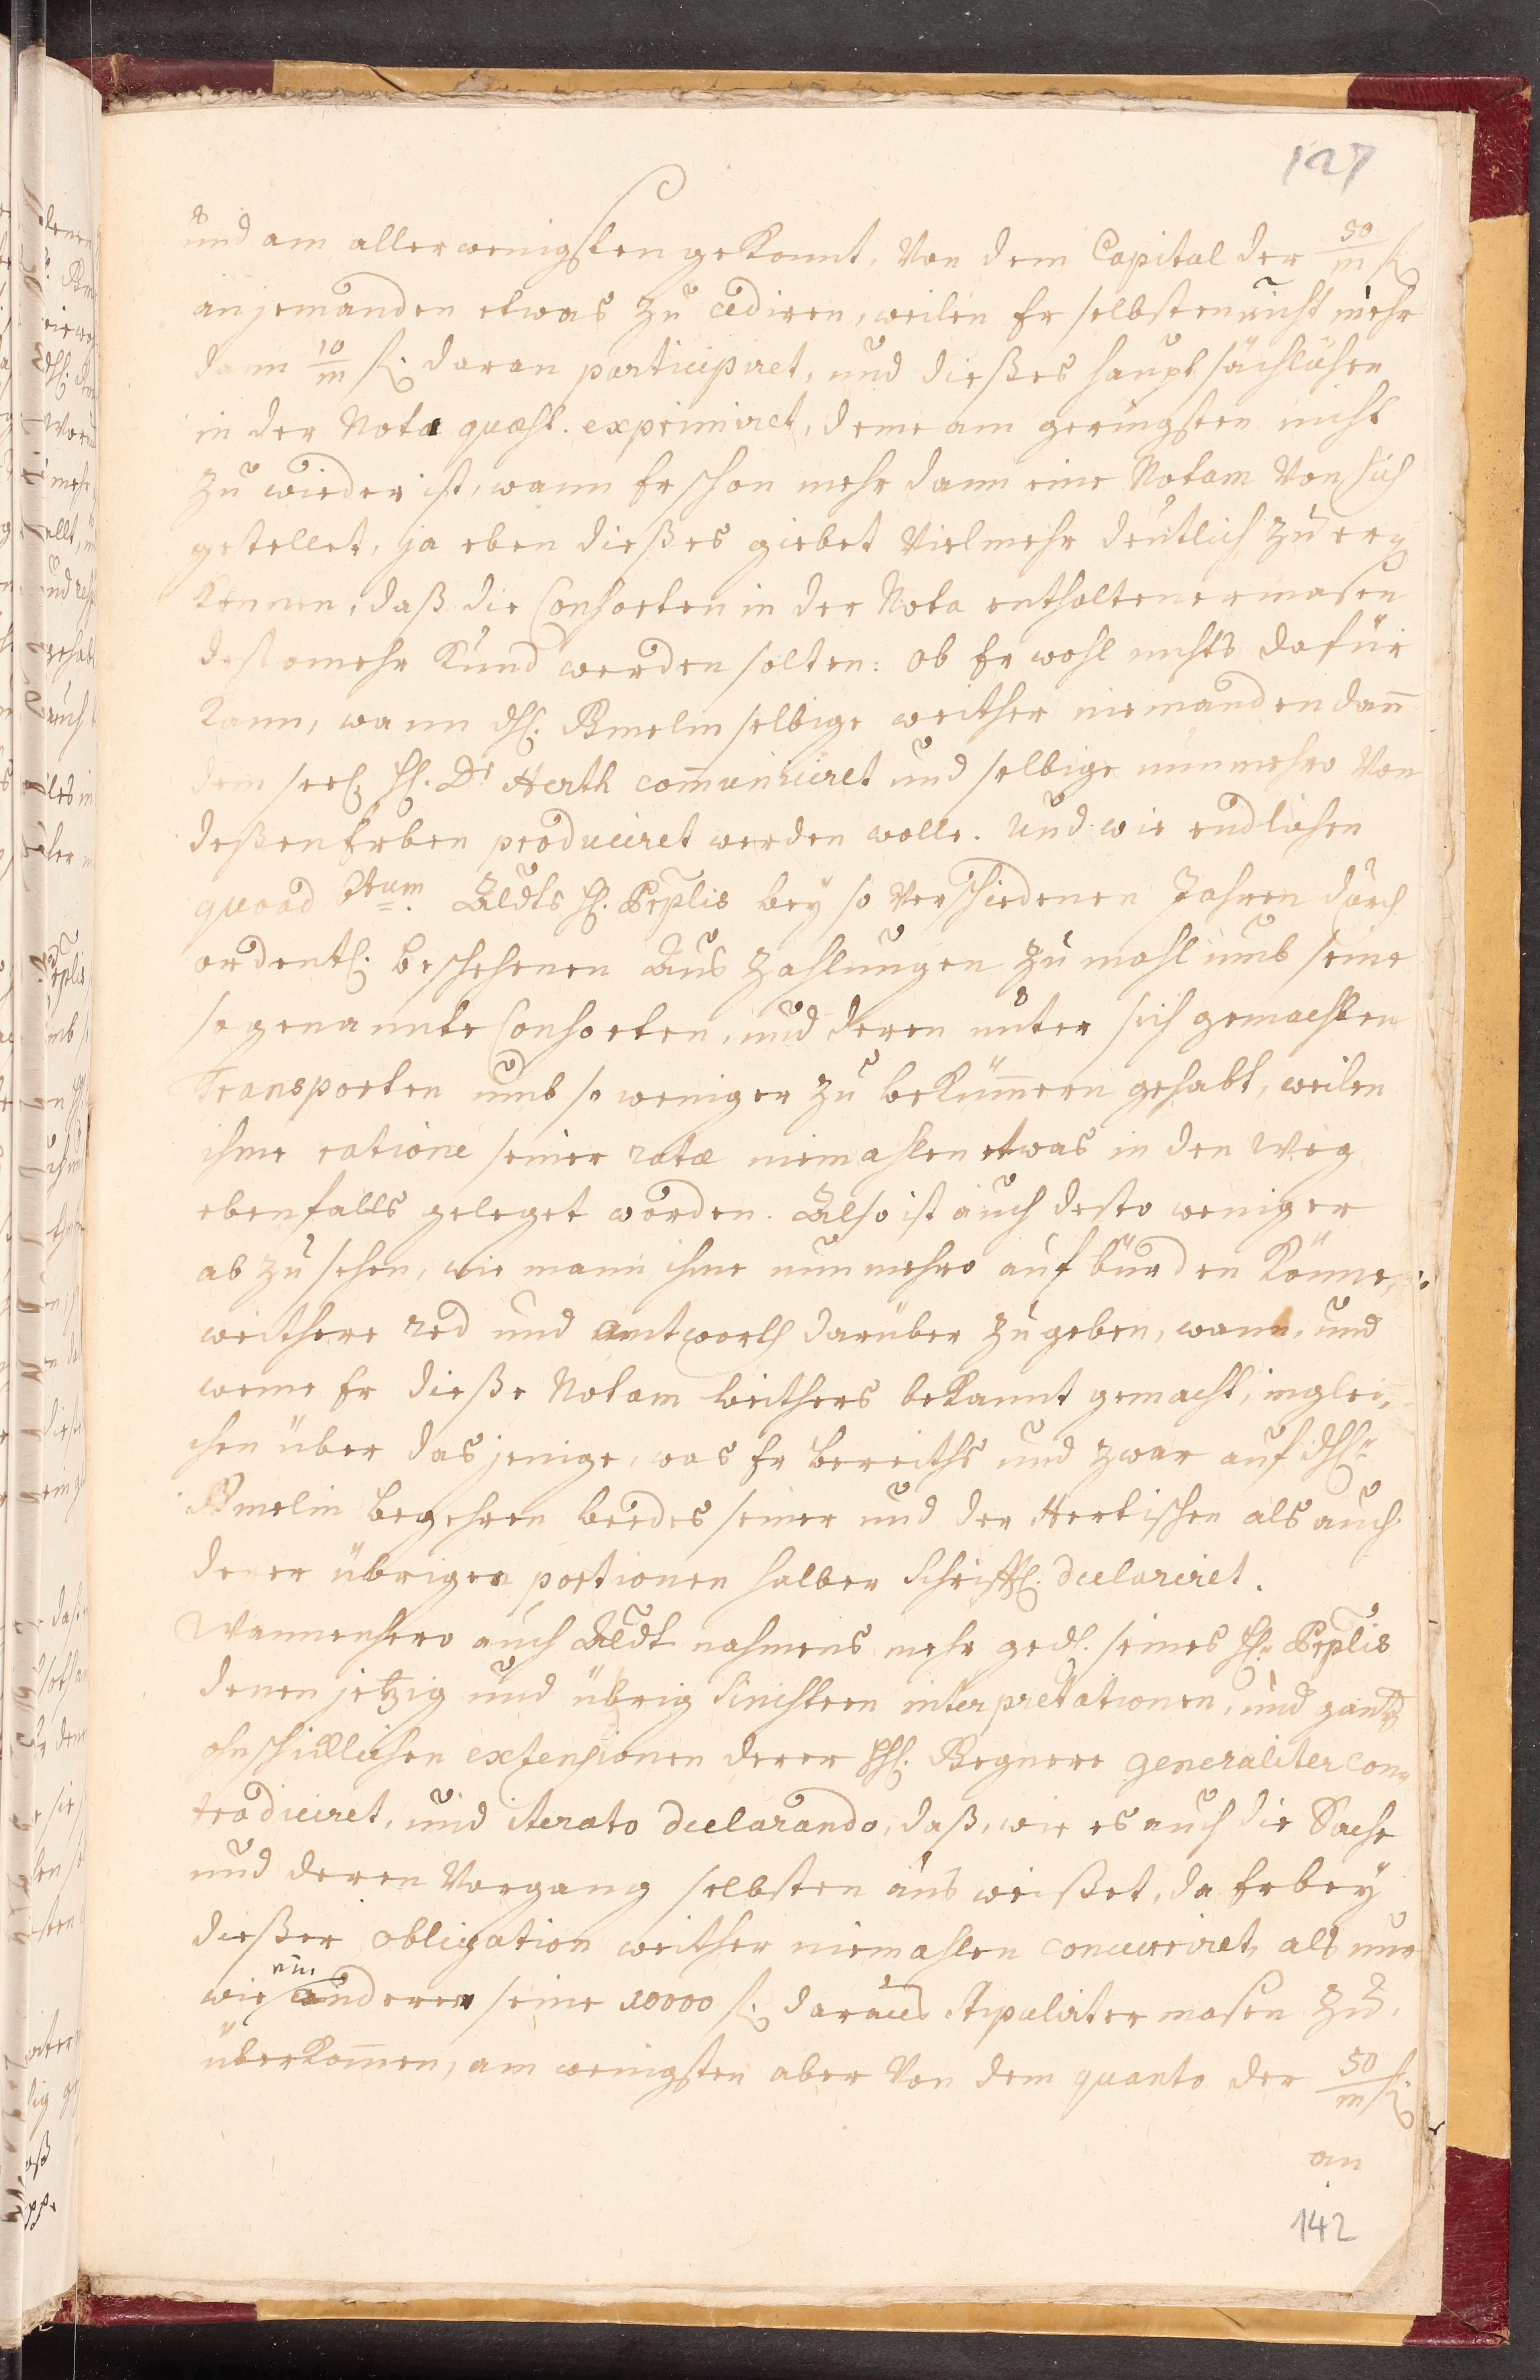 127
und am allerwenigsten gekonnt, Von dem Capital der 50/m fl.
an jemanden etwas zu cediren, weilen Er selbsten nicht mehr
dann 10/m fl. daran participiret, und dießes hauptsächlichen
in der Nota quæst. exprimiret, deme am geringsten nicht
zu wieder ist, wann Er schon mehr dann eine Notam Von sich
gestellet, ja eben dießes giebet Vielmehr deutlich zu er-
kennen, daß die Consorten in der Nota enthaltenermasen
destomehr Kund werden solten: ob Er wohl nichts dafür
kann, wann H. Gmelin selbige weither niemanden dann
dem seel. H. Dr Herth communiciret und selbige nunmehro Von
deßen Erben produciret werden wolle. Und wie endlichen
quoad 3tium. Aldts H. Peplis bey so Verschiedenen Jahren durch
ordentl. beschehenen Aus Zahlungen zu mahl umb seine
so genannte Consorten, und deren unter sich gemachten
Transporten umb so weniger zu bekümmern gehabt, weilen
ihme ratione seiner ratæ niemahlen etwas in den Weg
ebenfalls geleget worden. Also ist auch desto weniger
ab zu sehen, wie mann ihme nunmehro aufbürden könne,
weithere red und antworth darüber zu geben, wann, und
weme Er dieße Notam weithers bekannt gemacht, inglei-
chen über das jenige, was Er bereiths und zwar auf H.
Gmelin begehren beedes seiner und der Hertischen als auch
derer übrigen portionen halber schrifftl. declariret.
Wannenhero auch Aldt nahmens mehr ged. seines H. Peplis
denen jetzig und übrig sinistren interpretationen, und gantz
ohnschicklichen extensionen derer HH. Gegnere generaliter con-
tradiciret, und iterato declarando, daß, wie es auch die Sache
und deren Vorgang selbsten aus weißet, da Er bey
dießer obligation weither niemahlen concurriret, als nur
wie ein anderer seine 10000 fl. daraus stipulirter masen zu
überkommen, am wenigsten aber Von dem quanto der 50/m fl.
an
142